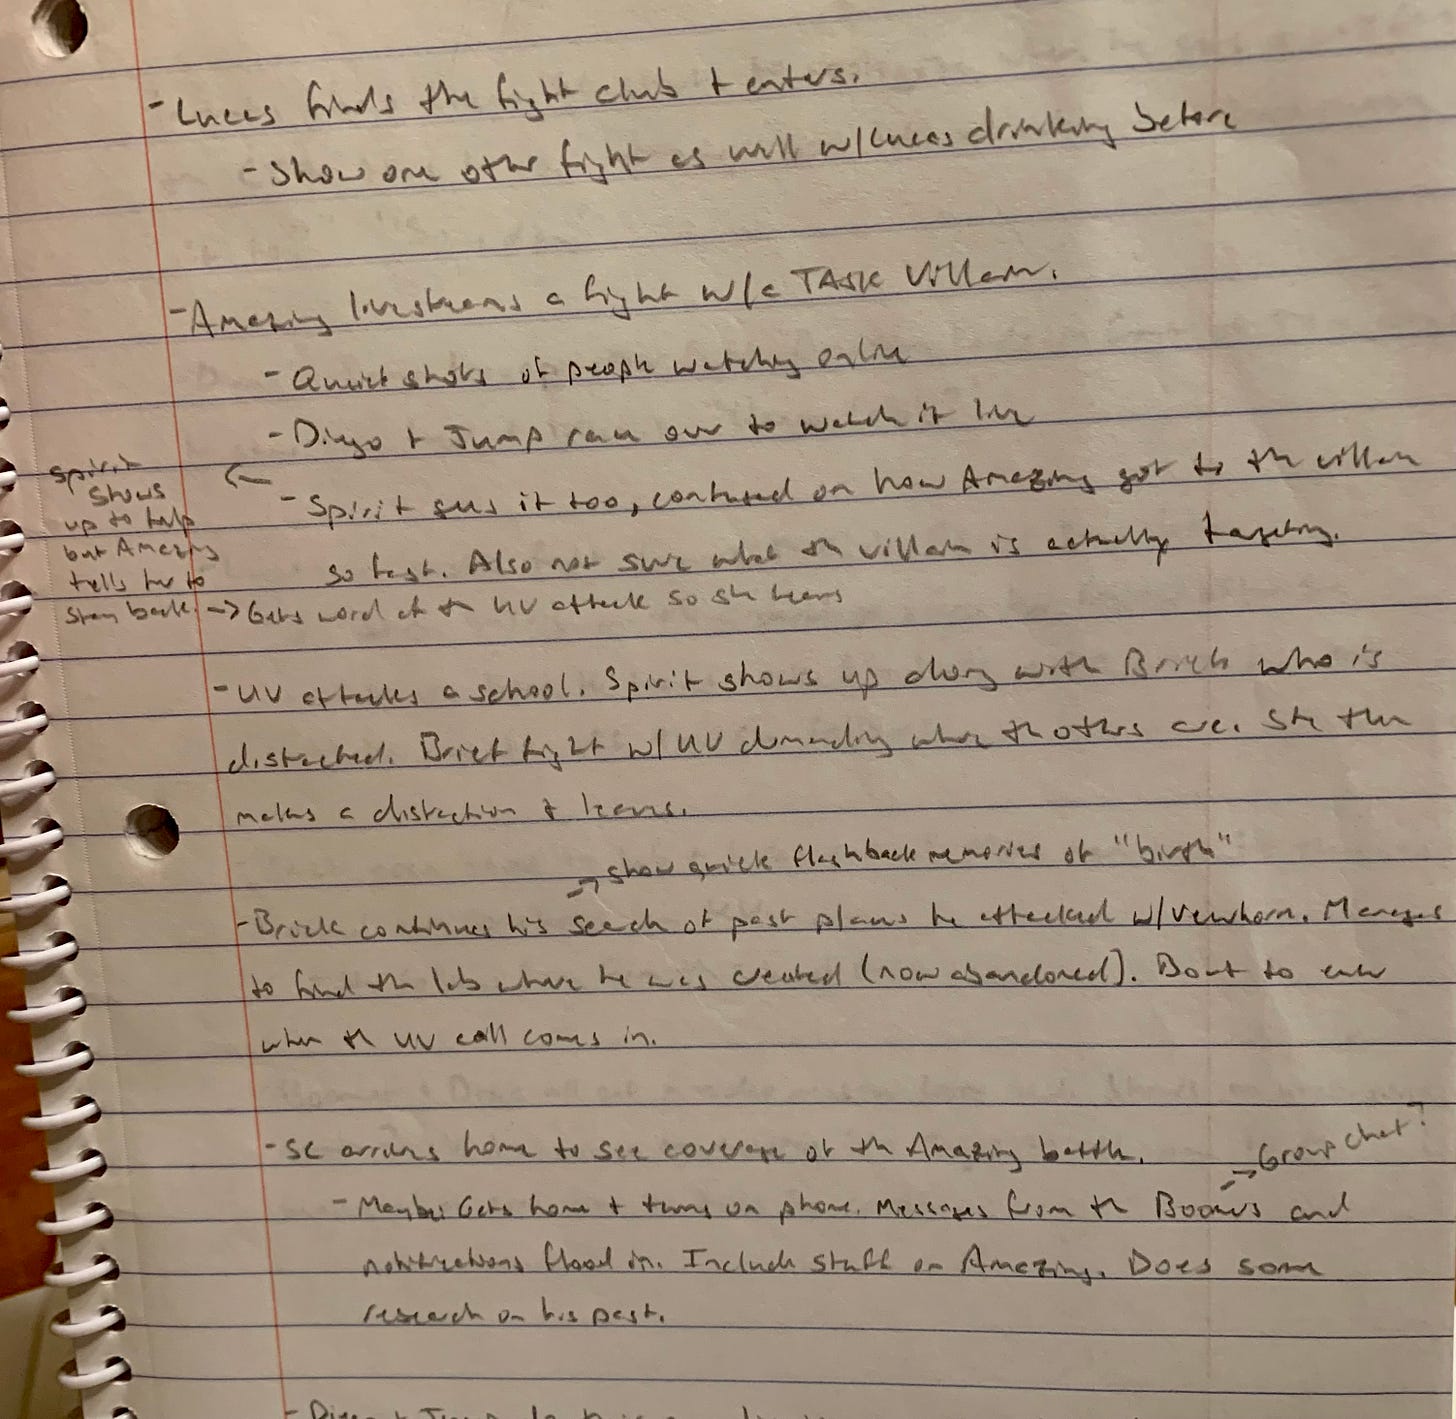 - Lucas finds the fight club + enters.
- Show one other fight as well w/Lucas drinking before
- Amazing livestreams a fight w/a TASK Villain.
- Quick shots of people watching online
- Diego + Jump race over to watch it live
Spirit
shows
up to help
but Amazing
tells her to
stay back.
- Spirit sees it too, confused on how Amazing got to the villain
so fast. Also not sure what the villain is actually targeting.
-> Gets word of the UV attack so she leaves
- UV attacks a school. Spirit shows up along with Brick who is
distracted. Brief fight w/ UV demanding where the others are. She then
makes a distraction + leaves.
-> show quick flashback memories of "birth"
- Brick continues his search of past places he attacked w/ Maneges
to find the lab where he was created (now abandoned). Bout to enter
when the UV call comes in.
- SC arrives home to see coverage of the Amazing battle.
-> Group chat?
- Maybe: Gets home + turns on phone. Messages from the and
notifications flood in. Include stuff on Amazing. Does some
research on his past.